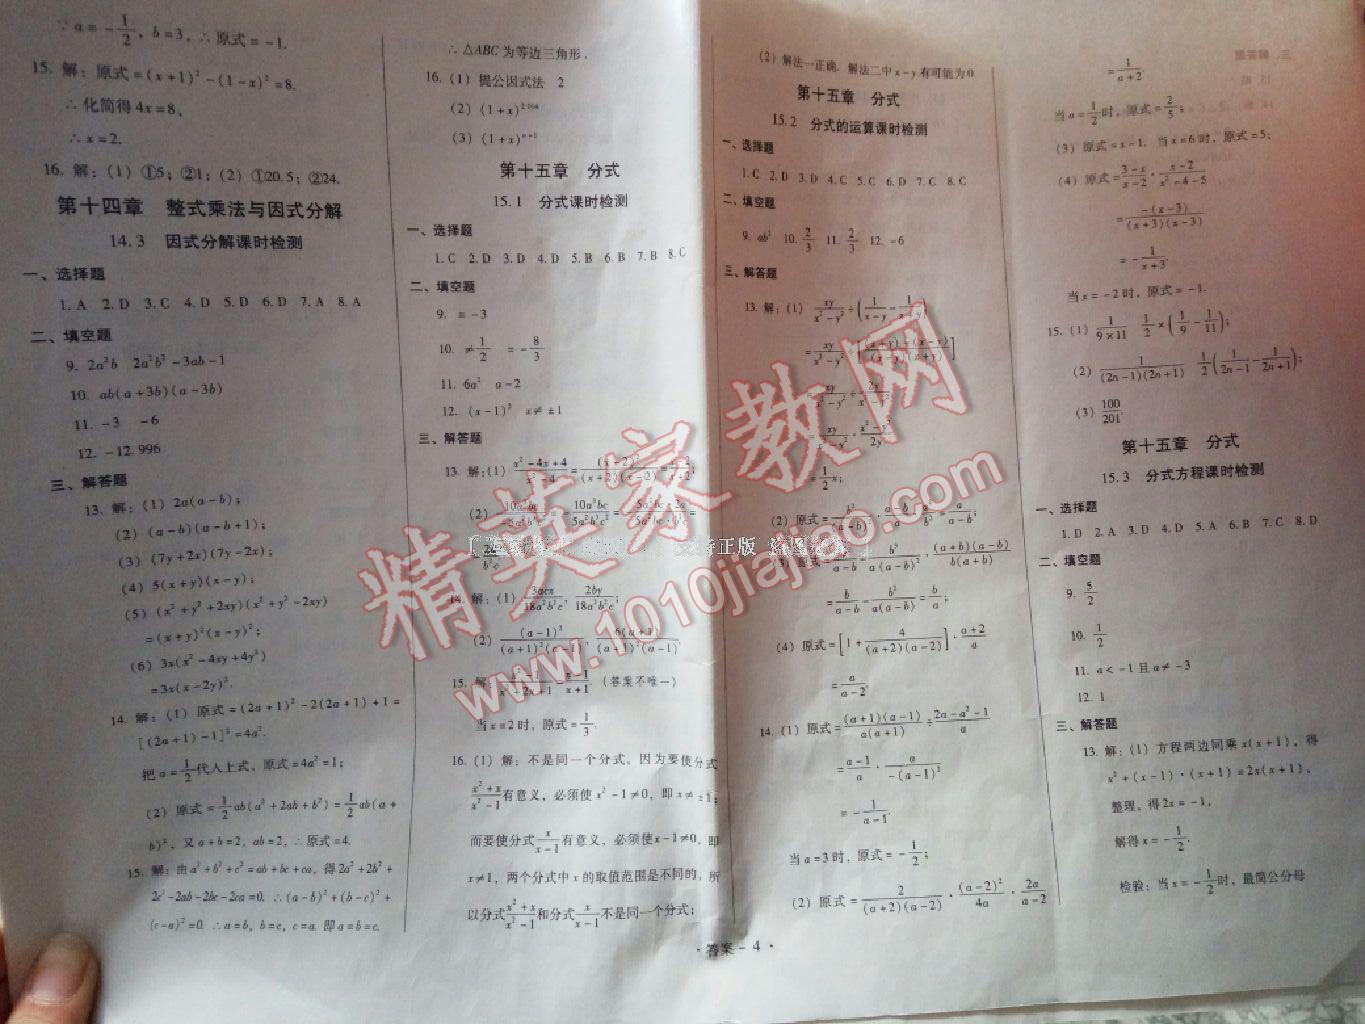 ∵a=-1/2,b=3,∴原式=-1.
15. 解:原式=(x+1)²-(1-x)²=8.
∴化简得4x=8,
∴x=2.
16. 解:(1)①5;②1;(2)①20.5;②24.
第十四章 整式乘法与因式分解
14.3 因式分解课时检测
一、选择题
1.A 2.D 3.C 4.D 5.D 6.D 7.A 8.A
二、填空题
9. 2a²b 2a²b³-3ab-1
10. ab(a+3b)(a-3b)
11. -3 -6
12. -12.996
三、解答题
13. 解:(1)2a(a-b);
(2)(a-b)(a-b+1);
(3)(7y+2x)(7y-2x);
(4)5(x+y)(x-y);
(5)(x²+y²+2xy)(x²+y²-2xy)
=(x+y)²(x-y)²;
(6)3x(x²-4xy+4y²)
=3x(x-2y)².
14. 解:(1)原式=(2a+1)²-2(2a+1)+1=
[(2a+1)-1]²=4a².
把a=1/2代入上式,原式=4a²=1;
(2)原式=1/2ab(a²+2ab+b²)=1/2ab(a+
b)²,又a+b=2,ab=2,∴原式=4.
15. 解:由a²+b²+c²=ab+bc+ca,得2a²+2b²+
2c²-2ab-2bc-2ca=0.∴(a-b)²+(b-c)²+
(c-a)²=0.∴a=b,b=c,c=a.即a=b=c.
∴△ABC为等边三角形.
16.(1)提公因式法 2
(2)(1+x)
(3)(1+x)ⁿ⁺¹
第十五章 分式
15.1 分式课时检测
一、选择题
1.C 2.D 3.D 4.D 5.B 6.B 7.B 8.C
二、填空题
9. =-3
10. ≠1/2 =-8/3
11. 6a² a-2
12. (x-1)³ x≠±1
三、解答题
13. 解:(1)(x²-4x+4)/(x²-4)=(x-2)²/((x+2)(x-2))=(x-2)/(x+2)
(2)
14. 解:(1)3acx/(18a²b²c),2by/(18a²b²c);
(2)(a-1)²/((a+1)²(a-1)),6(a+1)/((a+1)²(a-1))
15. 解 (答案不唯一)
当x=2时,原式=1/3.
16.(1)解:不是同一个分式,因为要使分式
(x²+x)/(x²-1)有意义,必须使x²-1≠0,即x≠±1;
而要使分式x/(x-1)有意义,必须使x-1≠0,即
x≠1,两个分式中x的取值范围是不同的,所
以分式(x²+x)/(x²-1)和分式x/(x-1)不是同一个分式;
(2)解法一正确.解法二中x-y有可能为0.
第十五章 分式
15.2 分式的运算课时检测
一、选择题
1.C 2.D 3.D 4.D 5.C 6.C 7.C 8.C
二、填空题
9. ab² 10. 2/3 11. 2/3 12. -6
三、解答题
13. 解:(1)xy/(x²-y²)÷(1/(x-y)-1/(x+y))
=xy/(x²-y²)÷[((x+y)-(x-y))/((x-y)(x+y))]
=xy/(x²-y²)÷2y/(x²-y²)
=xy/(x²-y²)·(x²-y²)/2y
=1/2x;
(2)原式=
(3)原式= ·(a+b)(a-b)/(b(a+b))
=b/(a-b)-b²/(a(a-b))=b/a;
(4)原式=[1+4/((a+2)(a-2))]·(a+2)/a
=a/(a-2).
14.(1)原式=(a+1)(a-1)/(a(a+1))÷(2a-a²-1)/a
=(a-1)/a·a/(-(a-1)²)
=-1/(a-1).
当a=3时,原式=-1/2;
(2)原式=2/((a+2)(a-2))·(a-2)²/4a·2a/(a-2)
=1/(a+2)
当a=1/2时,原式=2/5;
(3)原式=x-1.当x=6时,原式=5;
(4)原式=(3-x)/(x-2)·(x-2)/(x²-4-5)
=-(x-3)/((x+3)(x-3))
=-1/(x+3)
当x=-2时,原式=-1.
15.(1)1/(9×11) 1/2×(1/9-1/11);
(2)1/((2n-1)(2n+1)) 1/2(1/(2n-1)-1/(2n+1));
(3)100/201.
第十五章 分式
15.3 分式方程课时检测
一、选择题
1.D 2.A 3.D 4.D 5.A 6.B 7.C 8.D
二、填空题
9. 5/2
10. 1/2
11. a<-1且a≠-3
12. 1
三、解答题
13. 解:(1)方程两边同乘x(x+1),得
x²+(x-1)·(x+1)=2x(x+1),
整理,得2x=-1,
解得x=-1/2.
检验:当x=-1/2时,最简公分母
·答案-4·
精英家教网
www.1010jiajiao.com